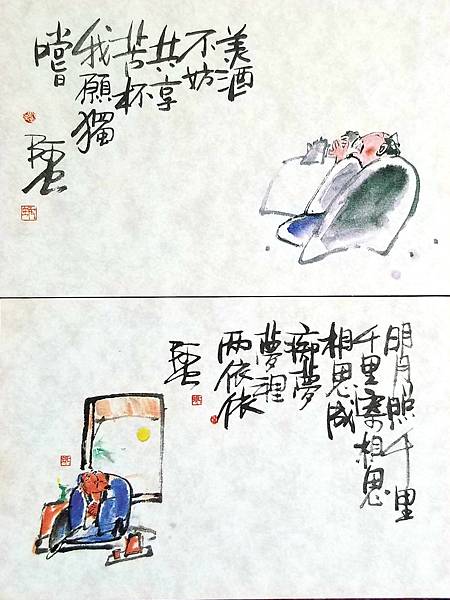 美酒
不妨
共享
苦杯
我願獨
嚐
阿虫
明月照千里
千里寄相思
相思成
痴夢
夢裡
两依依
阿虫